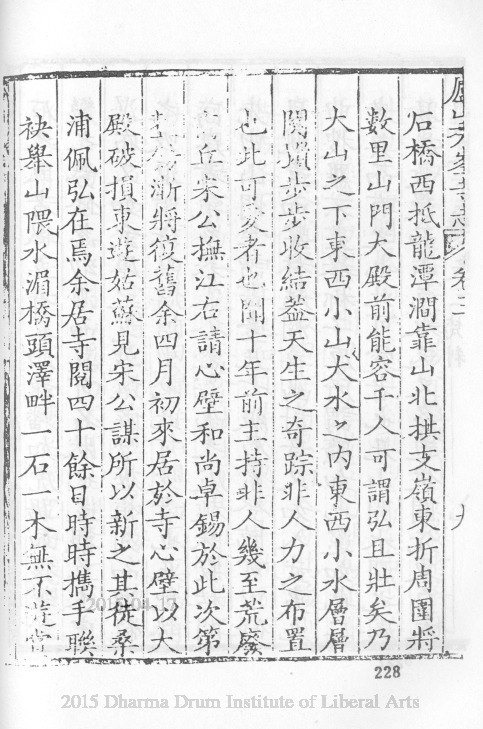 石橋西抵龍潭澗靠山北拱支嶺東折周圍將
數里山門大殿前能容千人可謂弘且壯矣乃
大山之下東西小山大水之內東西小水層層
關鎖步步收結蓋天生之奇踪非人力之布置
也此可愛者也聞十年前主持非人幾至荒廢
丘宋公撫江右請心壁和尚卓錫於此次第
漸將復舊余四月初來居於寺心壁以大
殿破損東遊姑蘇見宋公謀所以新之其徒桑
浦佩弘在焉余居寺閱四十餘日時時攜手聯
袂舉山隈水湄橋頭澤畔一石一木無不遊賞
卷三
九
228
2015 Dharma Drum Institute of Liberal Arts